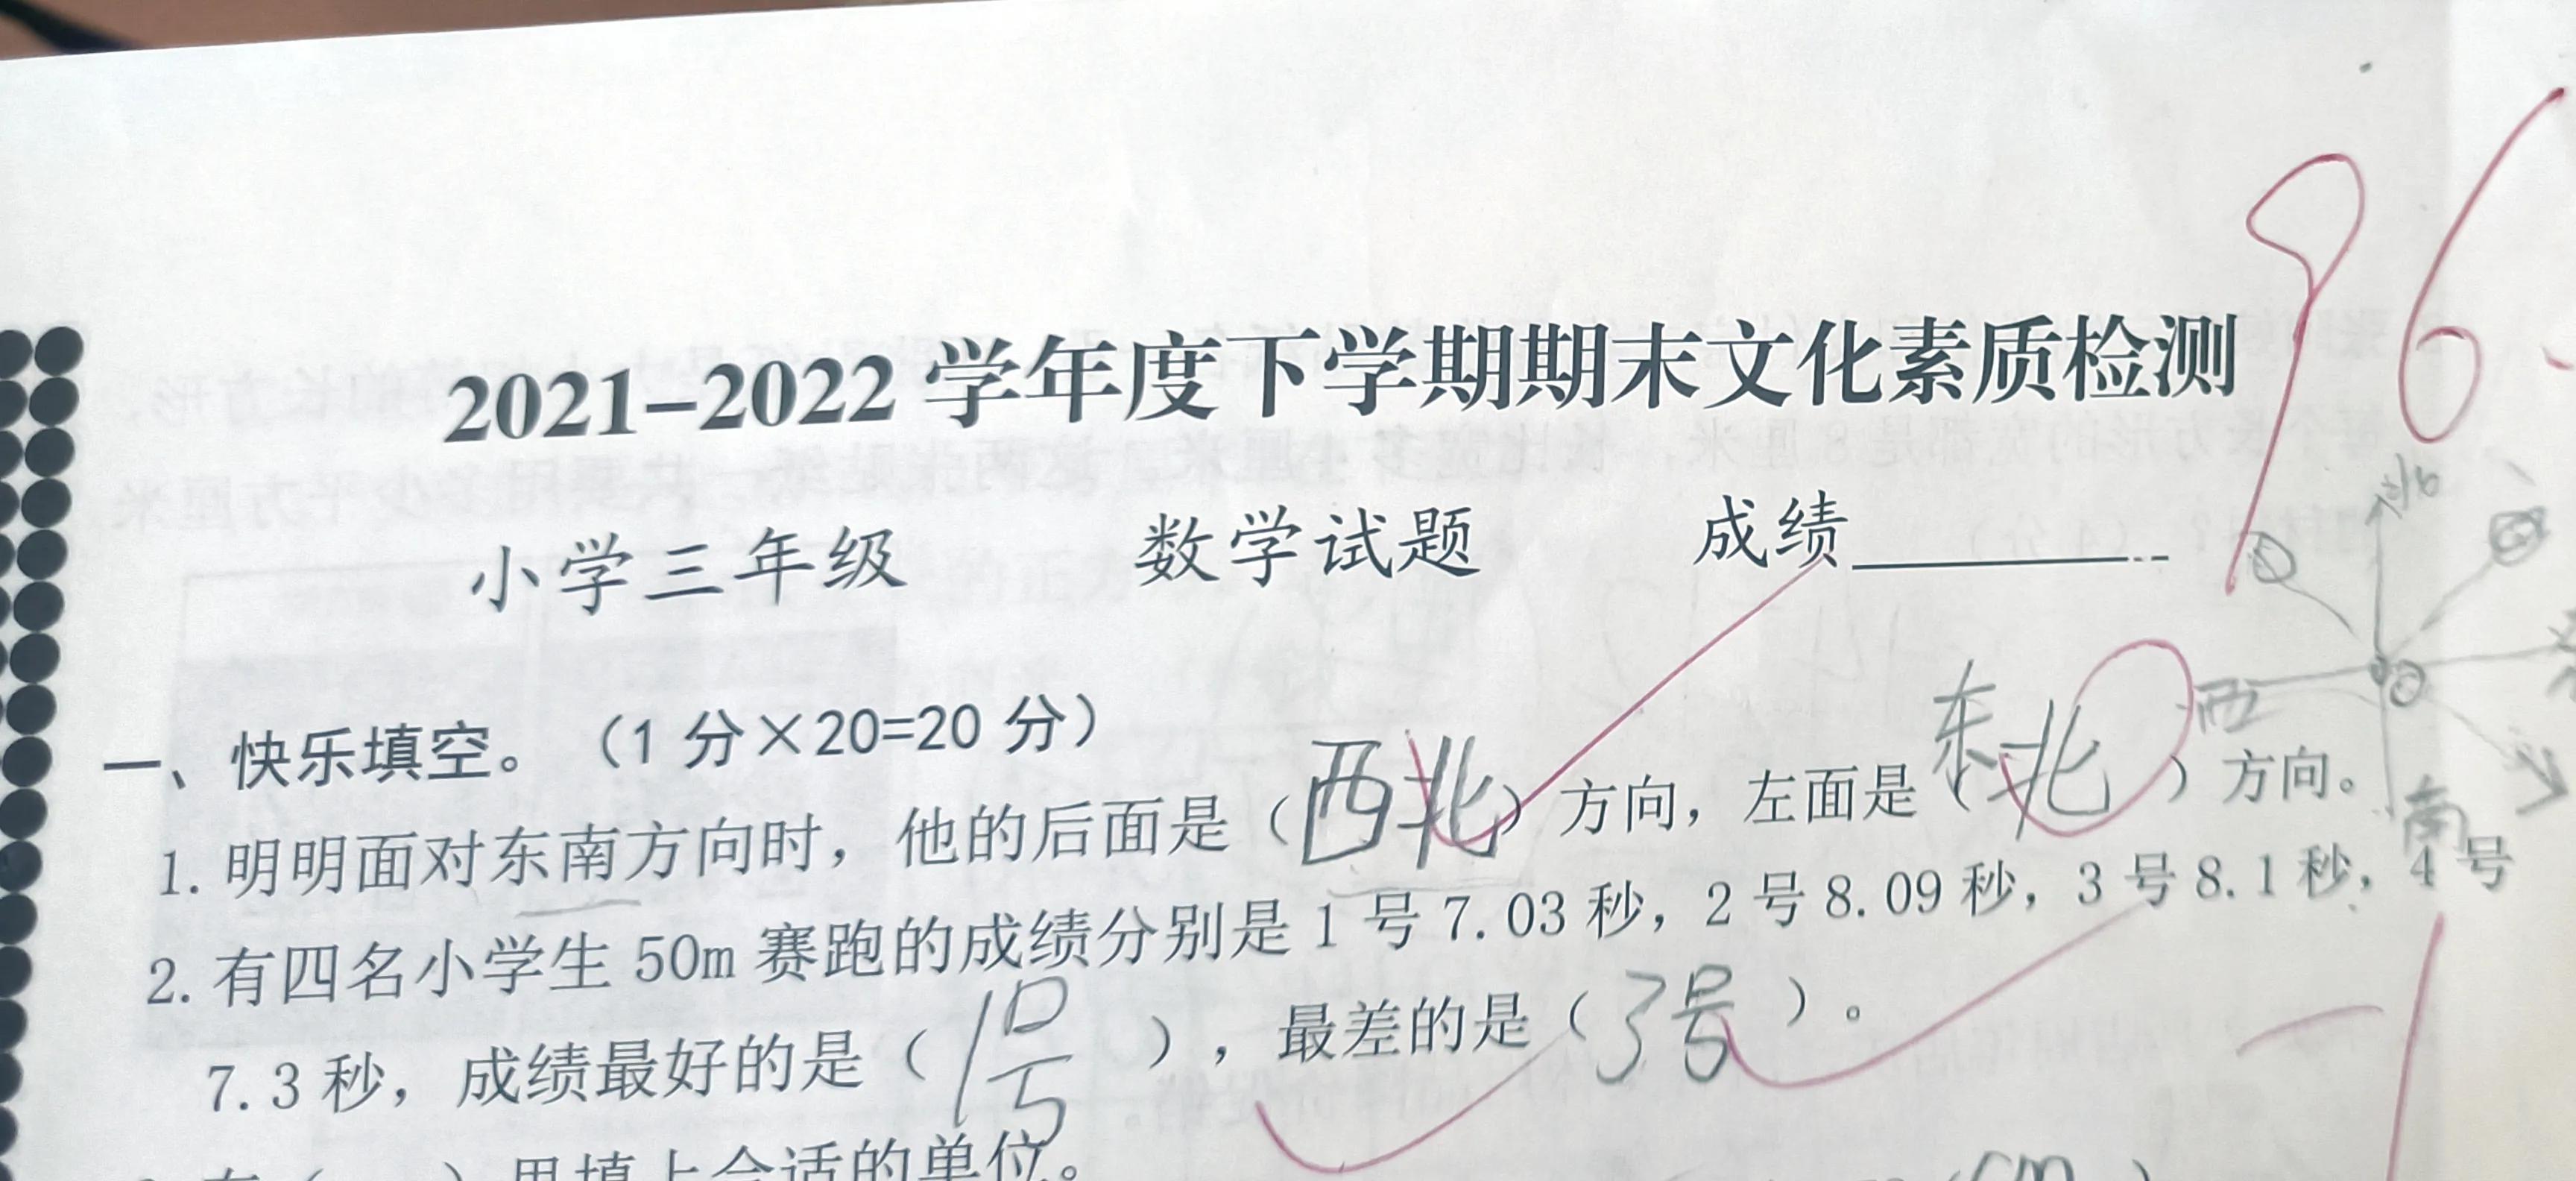 96
2021-2022学年度下学期期末文化素质检测
小学三年级 数学试题 成绩
北
西
南
一、快乐填空。（1分×20=20分）
1.明明面对东南方向时，他的后面是（西北）方向，左面是（东北）方向。
2.有四名小学生50m赛跑的成绩分别是1号7.03秒，2号8.09秒，3号8.1秒，4号
7.3秒，成绩最好的是（1号），最差的是（3号）。
-1
里填上合适的单位。
cm